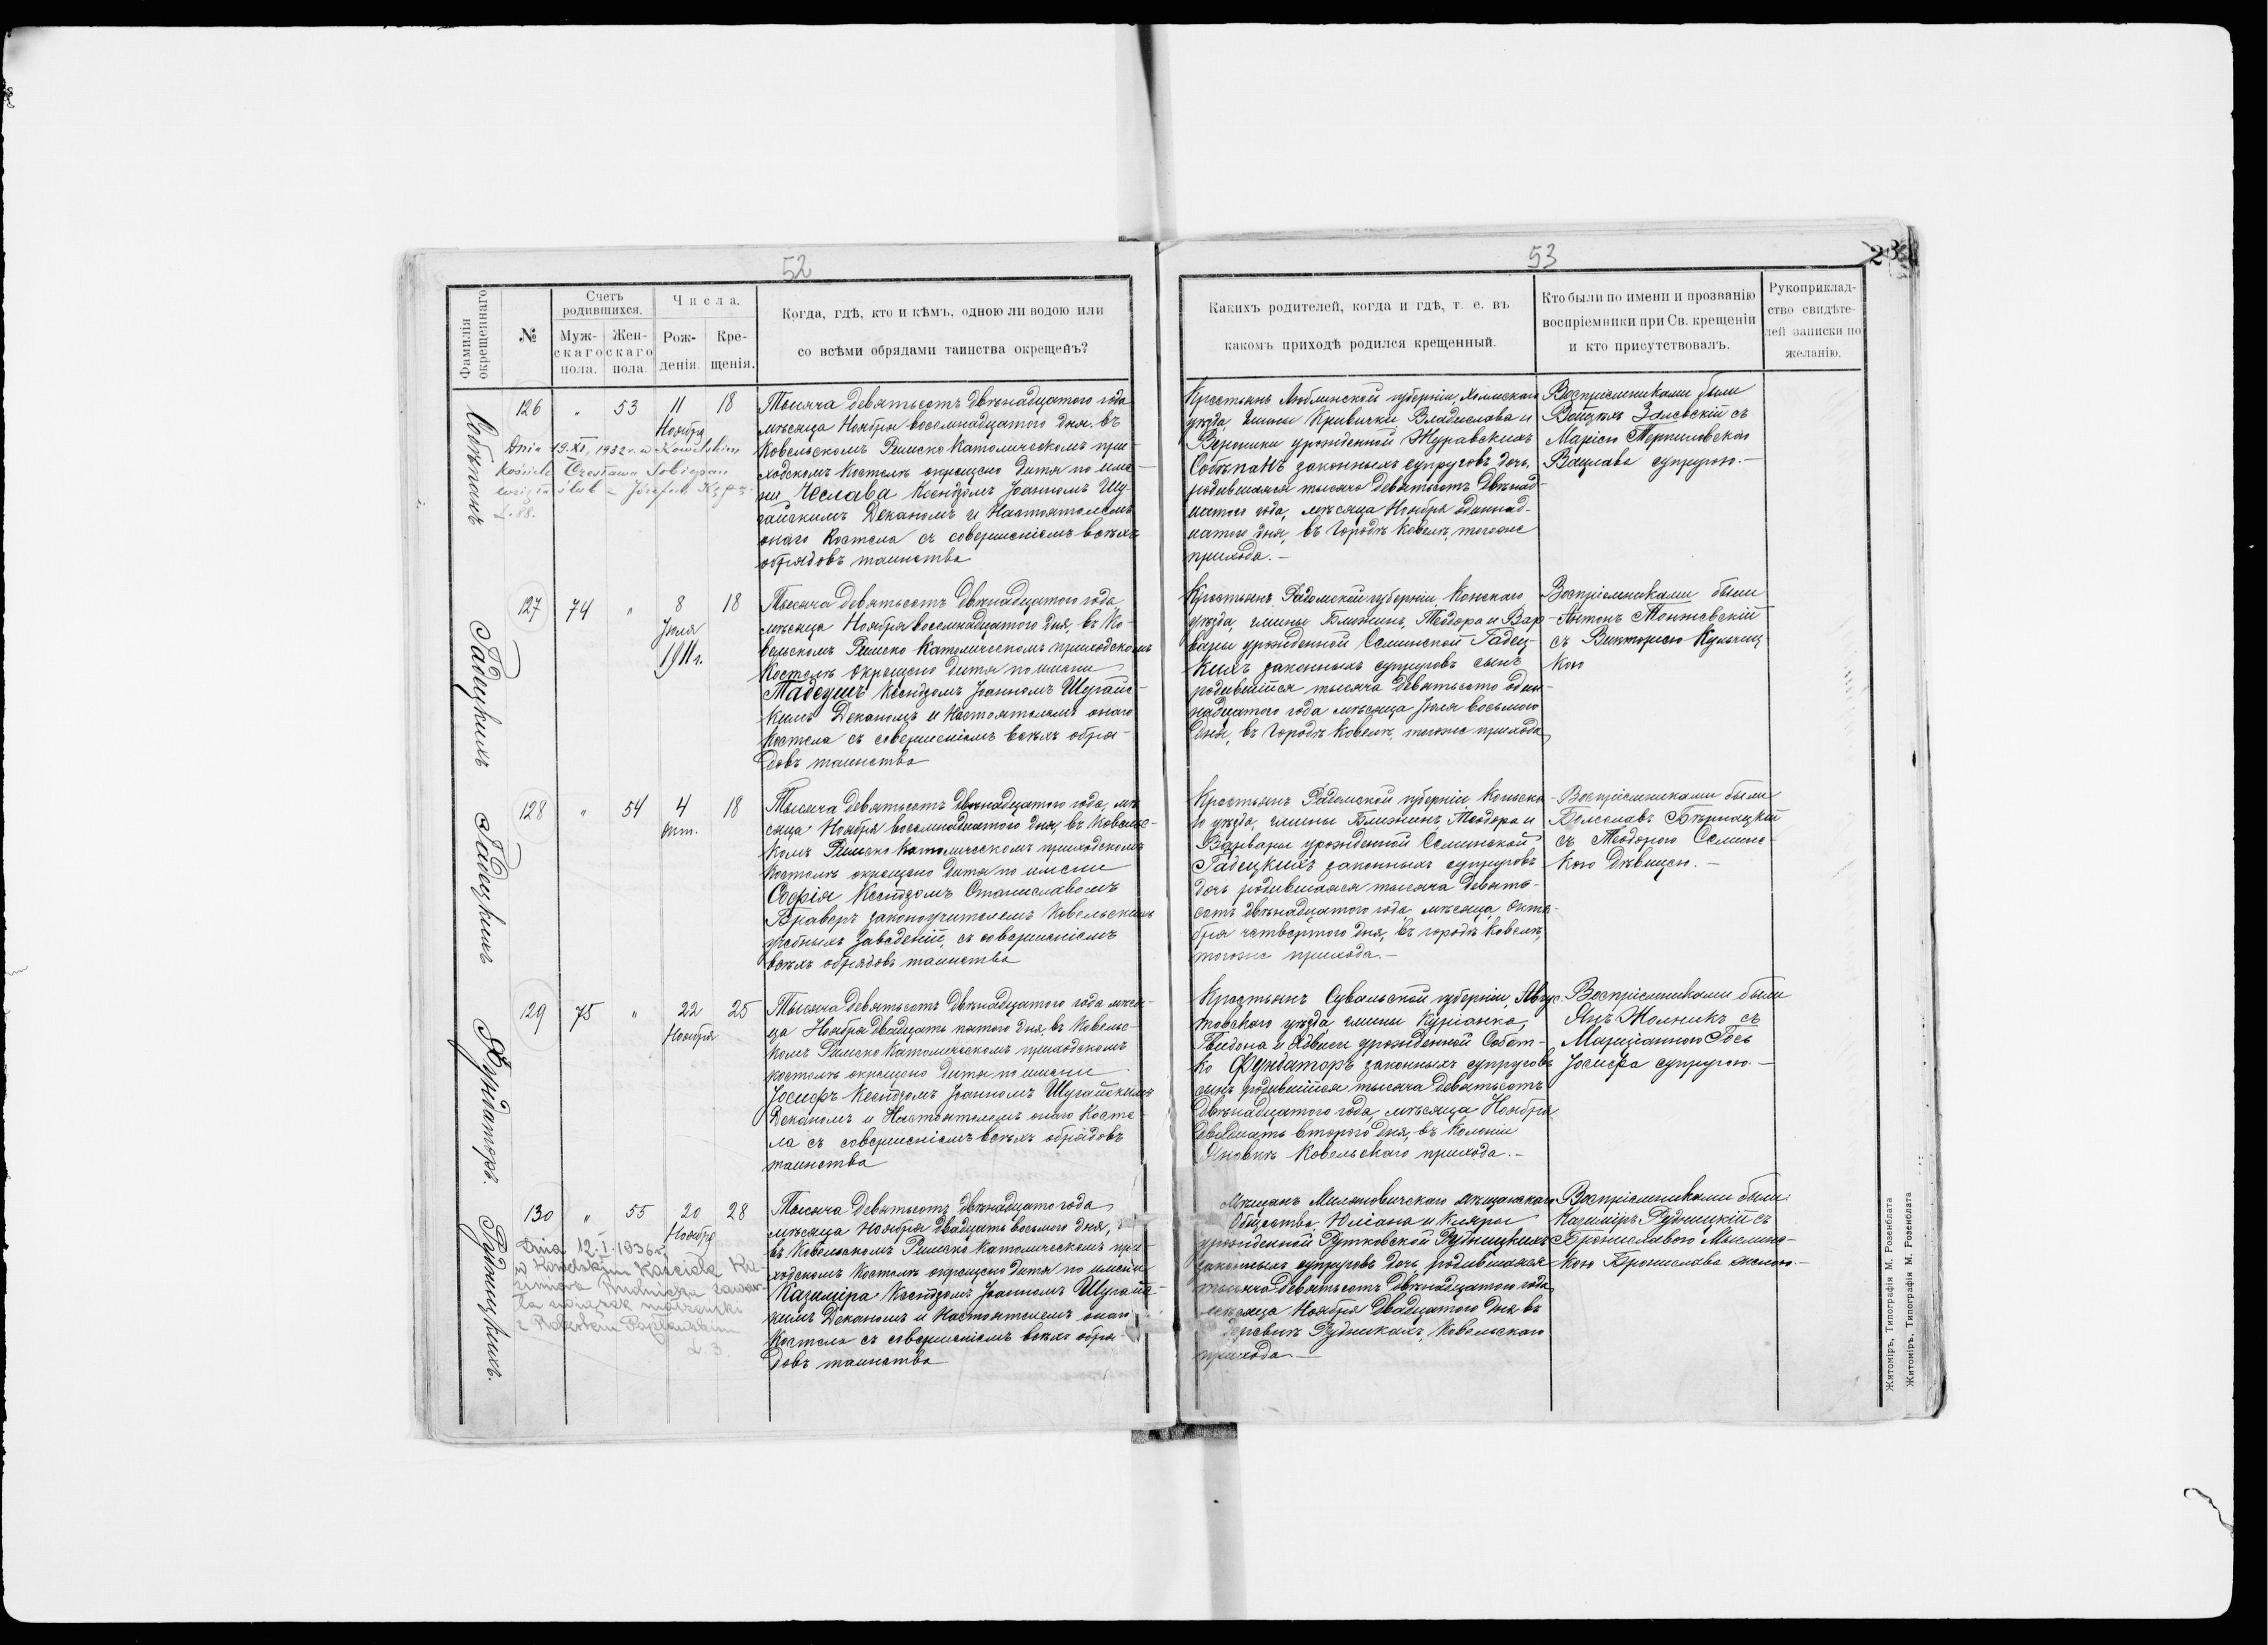 52
Фамилія окрещеннаго
№
Счетъ родившихся.
Муж-скаго пола.
Жен-скаго пола.
Числа.
Рож-денія.
Кре-щенія.
Когда, гдѣ, кто и кѣмъ, одною ли водою или
со всѣми обрядами таинства окрещенъ?
Собѣпанъ
126 " 53 11 Ноября 18
Dnia 19.XI.1932 r. w Kowelskim
kościele Czesława Sobiepan
wzięła ślub z Józefem
L. 88.
Тысяча девятьсотъ двѣнадцатого года
мѣсяца Ноября восемнадцатого дня въ
Ковельскомъ Римско Католическомъ при-
ходскомъ Костелѣ окрещено дитя по име-
ни Чеслава Ксендзомъ Іоанномъ Шу-
гайскимъ Деканомъ и Настоятелемъ
онаго Костела съ совершеніемъ всѣхъ
обрядовъ таинства
Гадецкихъ
127 74 " 8 Іюля 1911 г. 18
Тысяча девятьсотъ двѣнадцатого года
мѣсяца Ноября восемнадцатого дня, въ Ко-
вельскомъ Римско Католическомъ приходскомъ
Костелѣ окрещено дитя по имени
Тадеушъ Ксендзомъ Іоанномъ Шугайс-
кимъ Деканомъ и Настоятелемъ онаго
Костела съ совершеніемъ всѣхъ обря-
довъ таинства
Гадецкихъ
128 " 54 4 Окт. 18
Тысяча девятьсотъ двѣнадцатого года, мѣ-
сяца Ноября восемнадцатого дня, въ Ковельс-
комъ Римско Католическомъ приходскомъ
Костелѣ окрещено дитя по имени
Софія Ксендзомъ Станиславомъ
Браверъ законоучителемъ Ковельскихъ
учебныхъ заведеній, съ совершеніемъ
всѣхъ обрядовъ таинства
Фундаторъ.
129 75 " 22 Ноября 25
Тысяча девятьсотъ двѣнадцатого года мѣся-
ца Ноября двадцать пятого дня, въ Ковельс-
комъ Римско Католическомъ приходскомъ
костелѣ окрещено дитя по имени
Іосифъ Ксендзомъ Іоанномъ Шугайскимъ
Деканомъ и Настоятелемъ онаго Косте-
ла съ совершеніемъ всѣхъ обрядовъ
таинства
Рудницкихъ.
130 " 55 20 Ноября 28
Dnia 12.I.1936 r.
w Kowelskim Kościele Ka-
zimiera Rudnicka zawar-
ła związek małżeński
z
L. 3.
Тысяча девятьсотъ двѣнадцато года
мѣсяца Ноября двадцать восьмого дня,
въ Ковельскомъ Римско Католическомъ при-
ходскомъ Костелѣ окрещено дитя по имени
Казиміра Ксендзомъ Іоанномъ Шугайс-
кимъ Деканомъ и Настоятелемъ онаго
Костела съ совершеніемъ всѣхъ обря-
довъ таинства
53
23
Какихъ родителей, когда и гдѣ, т. е. въ
какомъ приходѣ родился крещенный.
Кто были по имени и прозванію
воспріемники при Св. крещеніи
и кто присутствовалъ.
Рукоприклад-
ство свидѣте-
лей записки по
желанію.
Крестьянъ Люблинской губерніи, Холмскаго
уѣзда, гмины Кривички Владислава и
Вероники урожденной Журавскихъ
Собѣпанъ законныхъ супруговъ дочь,
родившаяся тысяча девятьсотъ двѣнад-
цатого года, мѣсяца Ноября одиннад-
цатого дня, въ городѣ Ковелѣ, тогоже
прихода.—
Воспріемниками были
Войцѣхъ Залевскій съ
Маріею
Вацлава супругою.—
Крестьянъ Радомской губерніи, Конскаго
уѣзда, гмины Ближинъ, Теодора и Вар-
вары урожденной Селинской Гадец-
кихъ законныхъ супруговъ сынъ
родившійся тысяча девятьсотъ один-
надцатого года мѣсяца Іюля восьмого
дня, въ городѣ Ковелѣ, тогоже прихода
Воспріемниками были
Антонъ
съ Викторіею
кою
Крестьянъ Радомской губерніи, Конска-
го уѣзда, гмины Ближинъ Теодора и
Варвары урожденной Селинской
Гадецкихъ законныхъ супруговъ
дочь родившаяся тысяча девять-
сотъ двѣнадцатого года, мѣсяца Октя-
бря четвертого дня, въ городѣ Ковелѣ,
тогоже прихода.—
Воспріемниками были
Болеславъ Бѣрнацкій
съ Теодорою Селинс-
кою дѣвицею.—
Крестьянъ Сувалкской губерніи, Авгус-
товскаго уѣзда гмины Курianка,
Гвидона и Ядвиги урожденной Собот-
ко Фундаторъ законныхъ супруговъ
сынъ родившійся тысяча девятьсотъ
двѣнадцатого года, мѣсяца Ноября
двадцать второго дня, въ Колоніи
Яновкѣ Ковельскаго прихода.—
Воспріемниками были
Янъ Жолникъ съ
Маріянною Гось
Іосифа супругою.—
Мѣщанъ Миляновичскаго мѣщанскаго
Общества, Юліана и Клары
урожденной Рутковской Рудницкихъ
законныхъ супруговъ дочь, родившаяся
тысяча девятьсотъ двѣнадцатого года
мѣсяца Ноября двадцатого дня въ
деревнѣ Рудникахъ, Ковельскаго
прихода.—
Воспріемниками были
Казиміръ Рудницкій съ
Брониславою Мыслинс-
кою Бронислава женою.—
Житоміръ, Типографія М. Розенблата
Житоміръ, Типографія М. Розенблата